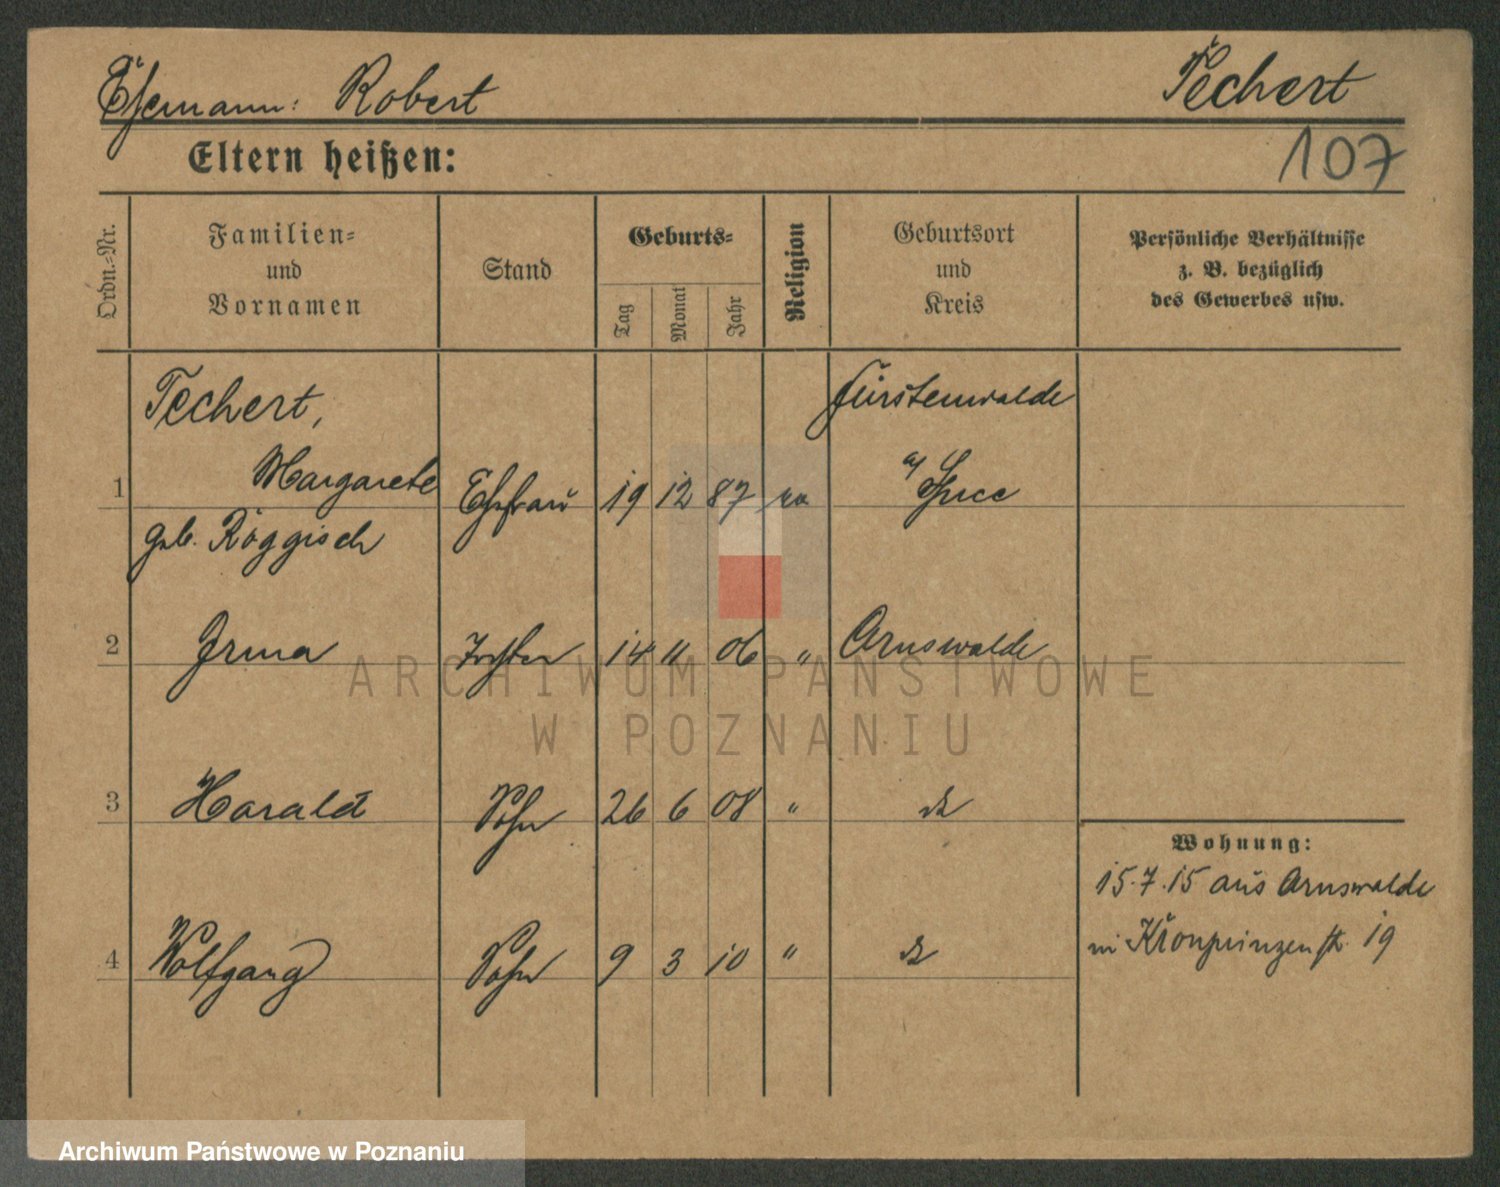 Ehemann: Robert Techert
Eltern heißen:
107
Ordn.-Nr.
Familien-
und
Vornamen
Stand
Geburts-
Tag
Monat
Jahr
Religion
Geburtsort
und
Kreis
Persönliche Verhältnisse
z. B. bezüglich
des Gewerbes usw.
Techert,
Fürstenwalde
1 Margarete Ehefrau 19 12 87 ev a/ Spree
geb. Röggisch
2 Irma Tochter 14 11 06 " Arnswalde
3 Harald Sohn 26 6 08 " do
Wohnung:
15.7.15 aus Arnswalde
in Kronprinzenstr. 19
4 Wolfgang Sohn 9 3 10 " do
ARCHIWUM PAŃSTWOWE
W POZNANIU
Archiwum Państwowe w Poznaniu